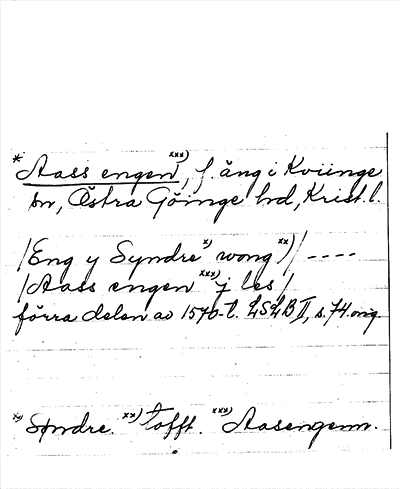 *Aass engen xxx), f. äng i Kviinge
sn, Östra Göinge hd, Krist. l.
/Eng y Syndre x) wong xx)/ ----
/Aass engen xxx) j les/
förra delen av 1570-t. LSLB II, s. 74 orig.
x) Spndre. xx) tofft. xxx) Aasengenn.